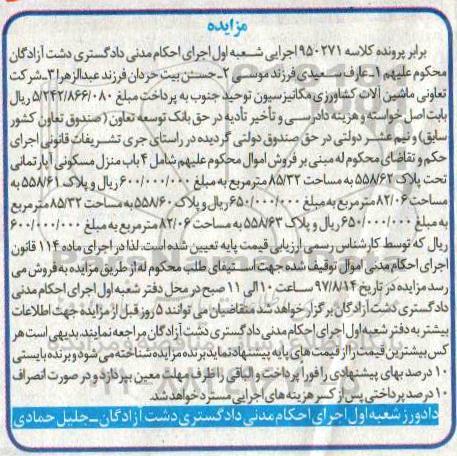 مزایده
برابر پرونده کلاسه ۹۵۰۲۷۱ اجرایی شعبه اول اجرای احکام مدنی دادگستری دشت آزادگان
محکوم علیهم ۱ـ عارف سعیدی فرزند موسی ۲ـ حسن بیت حردان فرزند عبدالزهرا ۳ـ شرکت
تعاونی ماشین آلات کشاورزی مکانیزسیون توحید جنوب به پرداخت مبلغ ۵/۲۴۲/۸۶۶/۰۸۰ ریال
بابت اصل خواسته و هزینه دادرسی و تأخیر تأدیه در حق بانک توسعه تعاون (صندوق تعاون کشور
سابق) و نیم عشر دولتی در حق صندوق دولتی گردیده در راستای جری تشریفات قانونی اجرای
حکم و تقاضای محکوم له مبنی بر فروش اموال محکوم علیهم شامل ۴ باب منزل مسکونی آپارتمانی
تحت پلاک ۵۵۸/۶۲ به مساحت ۸۵/۳۲ مترمربع به مبلغ ۶۰۰/۰۰۰/۰۰۰ ریال و پلاک ۵۵۸/۶۱ به
مساحت ۸۲/۰۶ مترمربع به مبلغ ۶۵۰/۰۰۰/۰۰۰ ریال و پلاک ۵۵۸/۶۰ به مساحت ۸۵/۳۲ مترمربع
به مبلغ ۶۵۰/۰۰۰/۰۰۰ ریال و پلاک ۵۵۸/۶۳ به مساحت ۸۲/۰۶ مترمربع به مبلغ ۶۰۰/۰۰۰/۰۰۰
ریال که توسط کارشناس رسمی ارزیابی قیمت پایه تعیین شده است. لذا در اجرای ماده ۱۱۴ قانون
اجرای احکام مدنی اموال توقیف شده جهت استیفای طلب محکوم له از طریق مزایده به فروش می
رسد مزایده در تاریخ ۹۷/۸/۱۴ ساعت ۱۰ الی ۱۱ صبح در محل دفتر شعبه اول اجرای احکام مدنی
دادگستری دشت آزادگان برگزار خواهد شد متقاضیان می توانند ۵ روز قبل از مزایده جهت اطلاعات
بیشتر به دفتر شعبه اول اجرای احکام مدنی دادگستری دشت آزادگان مراجعه نمایند، بدیهی است هر
کس بیشترین قیمت را از قیمت های پایه پیشنهاد نماید برنده مزایده شناخته می شود و برنده بایستی
۱۰ درصد بهای پیشنهادی را فورا پرداخت و الباقی را ظرف مهلت معین بپردازد و در صورت انصراف
۱۰ درصد پرداختی پس از کسر هزینه های اجرایی مسترد خواهد شد.
دادورز شعبه اول اجرای احکام مدنی دادگستری دشت آزادگان ـ جلیل حمادی